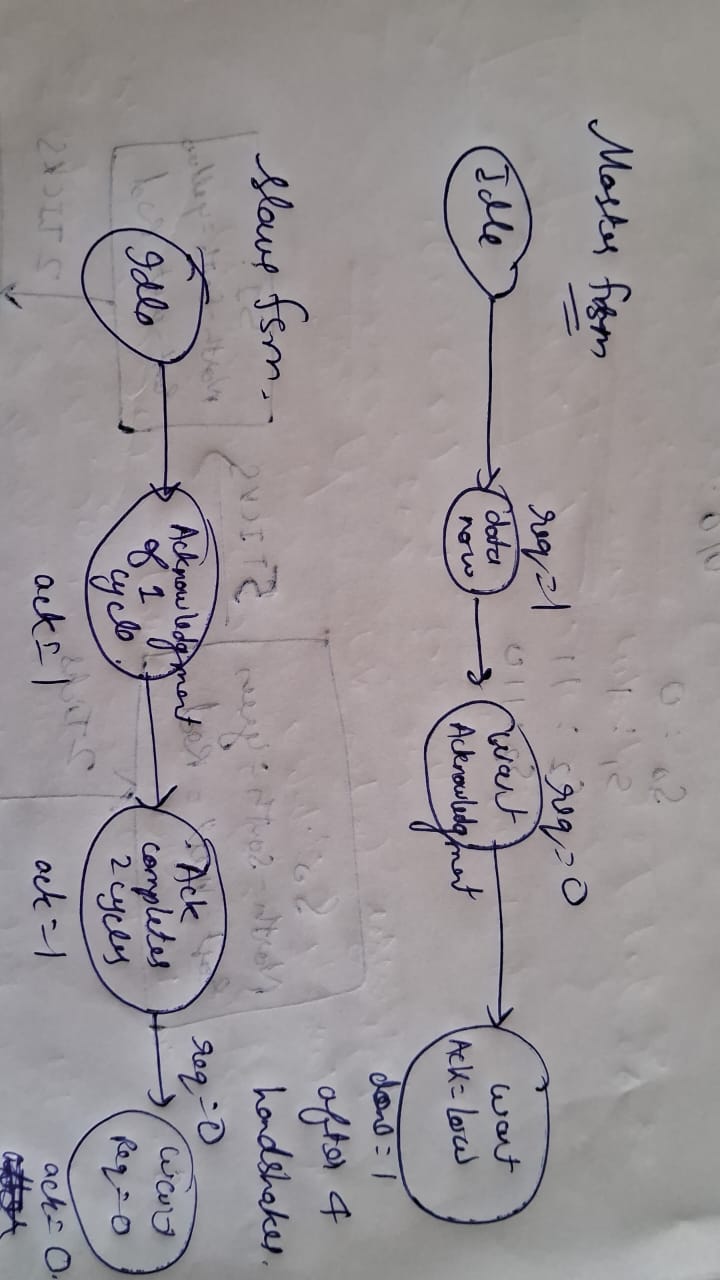 Master fsm
Idle
req=1
data
now
req=0
wait
Acknowledgment
wait
Ack=low
done=1
after 4
handshakes.
Slave fsm.
Idle
Acknowledgment
of 1
cycle.
ack=1
Ack
completes
2 cycles
ack=1
req=0
wait
Req=0
ack=0.